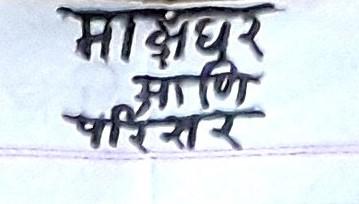 माझंघर
आणि
परिसर